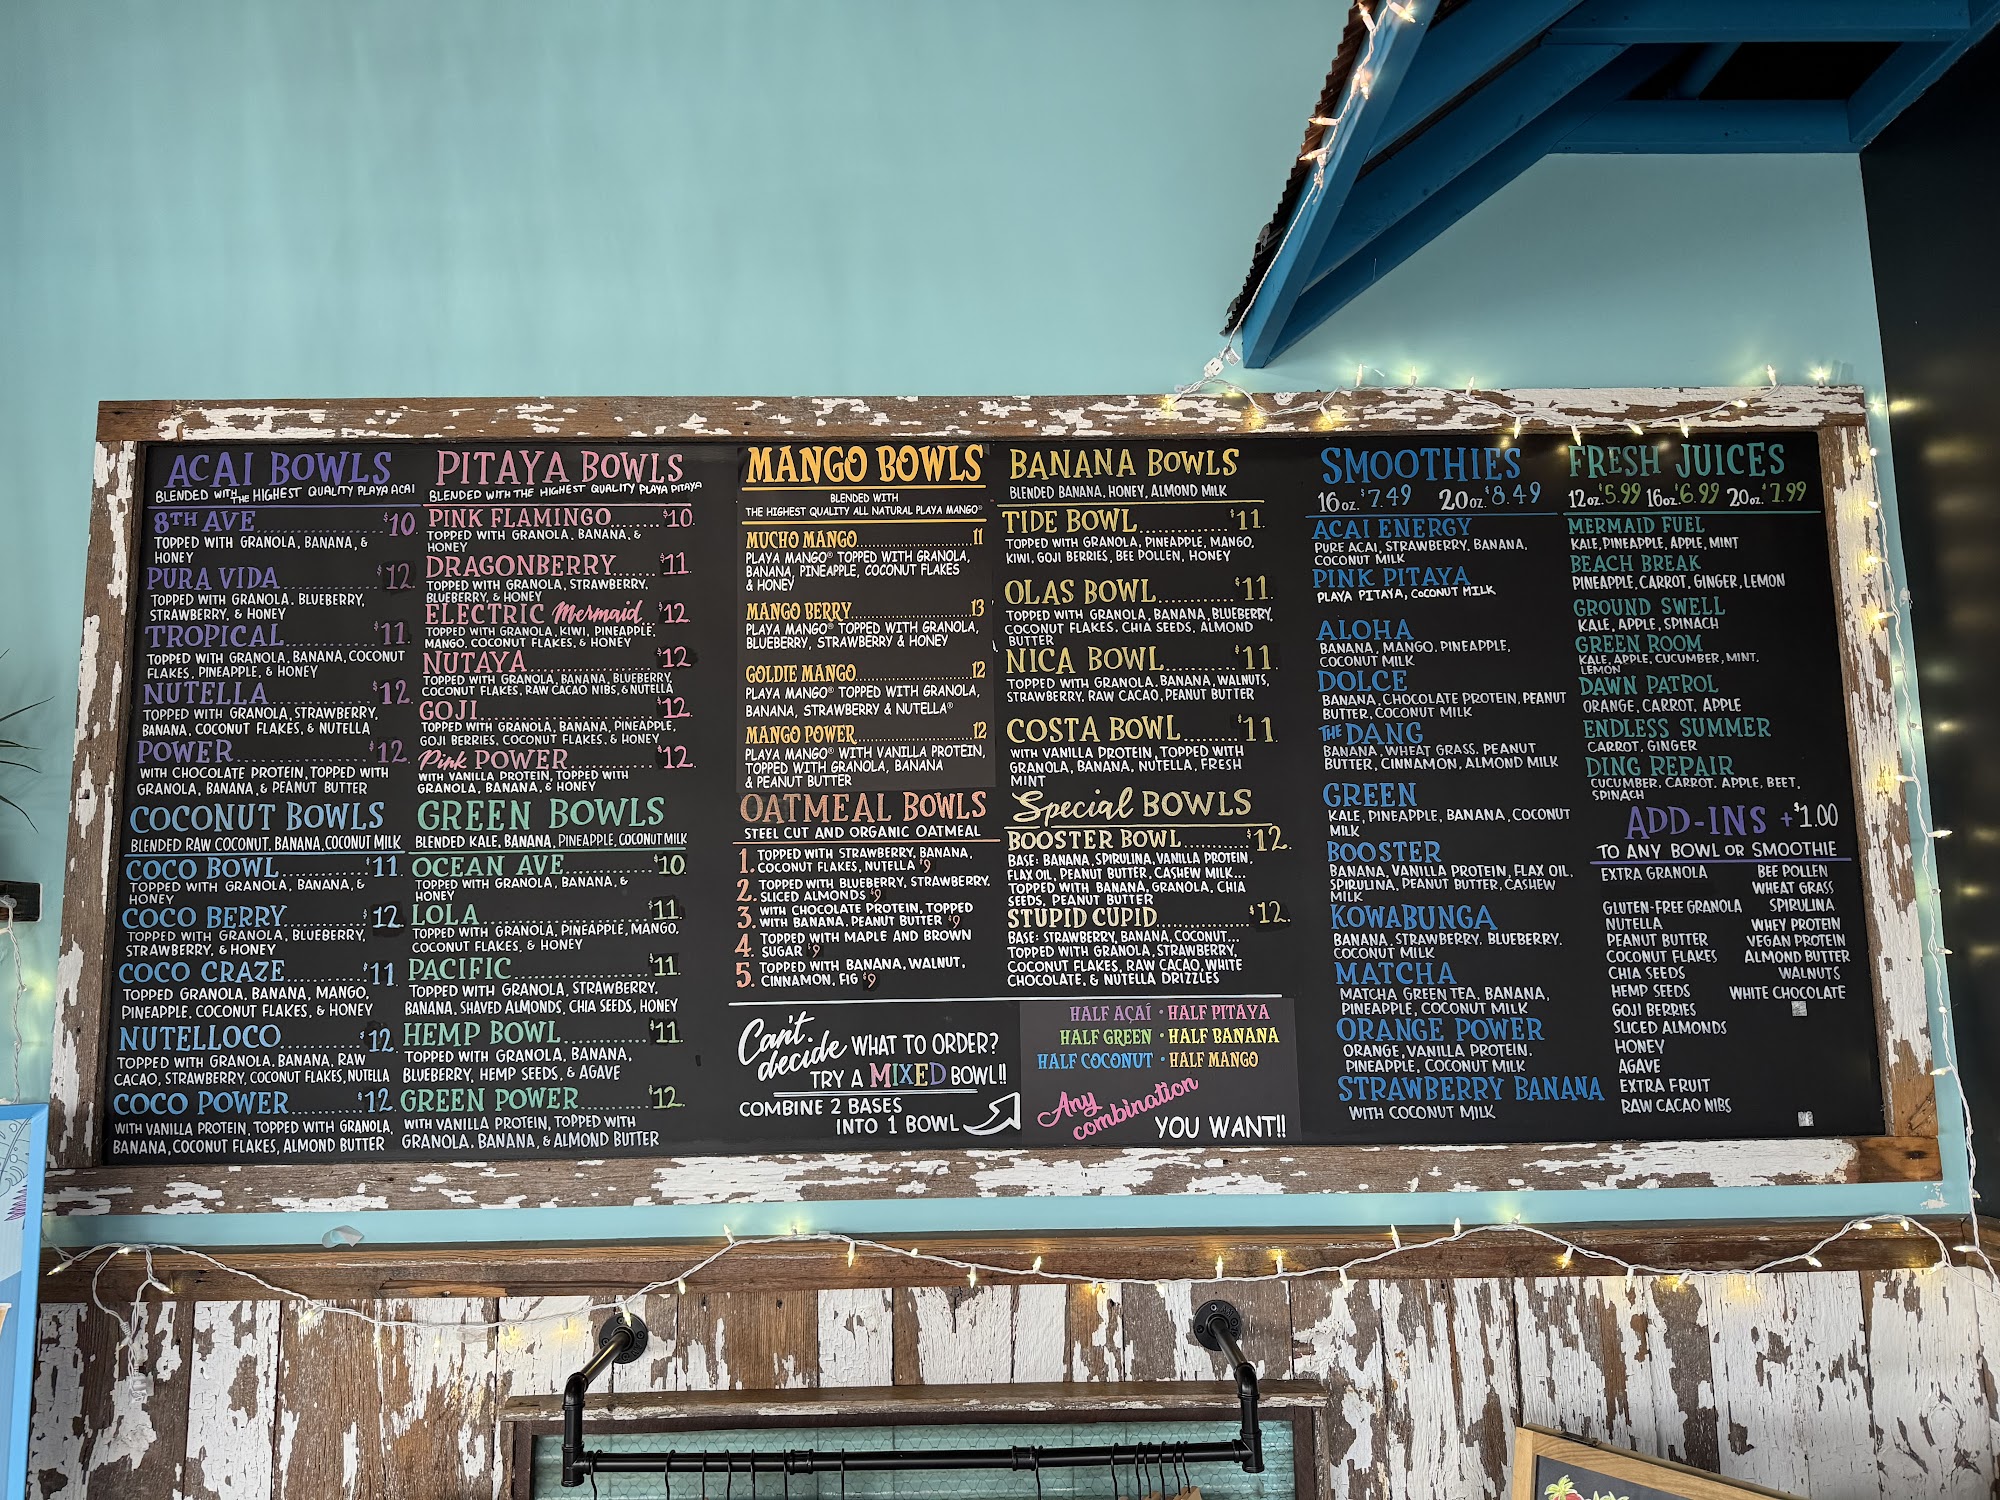 ACAI BOWLS
BLENDED WITH THE HIGHEST QUALITY PLAYA ACAI
8TH AVE.......$10
TOPPED WITH GRANOLA, BANANA, &
HONEY
PURA VIDA.......$12
TOPPED WITH GRANOLA, BLUEBERRY,
STRAWBERRY, & HONEY
TROPICAL.......$11
TOPPED WITH GRANOLA, BANANA, COCONUT
FLAKES, PINEAPPLE, & HONEY
NUTELLA.......$12
TOPPED WITH GRANOLA, STRAWBERRY,
BANANA, COCONUT FLAKES, & NUTELLA
POWER.......$12
WITH CHOCOLATE PROTEIN, TOPPED WITH
GRANOLA, BANANA, & PEANUT BUTTER
COCONUT BOWLS
BLENDED RAW COCONUT, BANANA, COCONUT MILK
COCO BOWL.......$11
TOPPED WITH GRANOLA, BANANA, &
HONEY
COCO BERRY.......$12
TOPPED WITH GRANOLA, BLUEBERRY,
STRAWBERRY, & HONEY
COCO CRAZE.......$11
TOPPED GRANOLA, BANANA, MANGO,
PINEAPPLE, COCONUT FLAKES, & HONEY
NUTELLOCO.......$12
TOPPED WITH GRANOLA, BANANA, RAW
CACAO, STRAWBERRY, COCONUT FLAKES, NUTELLA
COCO POWER.......$12
WITH VANILLA PROTEIN, TOPPED WITH GRANOLA,
BANANA, COCONUT FLAKES, ALMOND BUTTER
PITAYA BOWLS
BLENDED WITH THE HIGHEST QUALITY PLAYA PITAYA
PINK FLAMINGO.......$10
TOPPED WITH GRANOLA, BANANA, &
HONEY
DRAGONBERRY.......$11
TOPPED WITH GRANOLA, STRAWBERRY,
BLUEBERRY, & HONEY
ELECTRIC Mermaid...$12
TOPPED WITH GRANOLA, KIWI, PINEAPPLE,
MANGO, COCONUT FLAKES, & HONEY
NUTAYA.......$12
TOPPED WITH GRANOLA, BANANA, BLUEBERRY,
COCONUT FLAKES, RAW CACAO NIBS, & NUTELLA
GOJI.......$12
TOPPED WITH GRANOLA, BANANA, PINEAPPLE,
GOJI BERRIES, COCONUT FLAKES, & HONEY
Pink POWER.......$12
WITH VANILLA PROTEIN, TOPPED WITH
GRANOLA, BANANA, & HONEY
GREEN BOWLS
BLENDED KALE, BANANA, PINEAPPLE, COCONUT MILK
OCEAN AVE.......$10
TOPPED WITH GRANOLA, BANANA, &
HONEY
LOLA.......$11
TOPPED WITH GRANOLA, PINEAPPLE, MANGO,
COCONUT FLAKES, & HONEY
PACIFIC.......$11
TOPPED WITH GRANOLA, STRAWBERRY,
BANANA, SHAVED ALMONDS, CHIA SEEDS, HONEY
HEMP BOWL.......$11
TOPPED WITH GRANOLA, BANANA,
BLUEBERRY, HEMP SEEDS, & AGAVE
GREEN POWER.......$12
WITH VANILLA PROTEIN, TOPPED WITH
GRANOLA, BANANA, & ALMOND BUTTER
MANGO BOWLS
BLENDED WITH
THE HIGHEST QUALITY ALL NATURAL PLAYA MANGO®
MUCHO MANGO.......11
PLAYA MANGO® TOPPED WITH GRANOLA,
BANANA, PINEAPPLE, COCONUT FLAKES
& HONEY
MANGO BERRY.......13
PLAYA MANGO® TOPPED WITH GRANOLA,
BLUEBERRY, STRAWBERRY & HONEY
GOLDIE MANGO.......12
PLAYA MANGO® TOPPED WITH GRANOLA,
BANANA, STRAWBERRY & NUTELLA®
MANGO POWER.......12
PLAYA MANGO® WITH VANILLA PROTEIN,
TOPPED WITH GRANOLA, BANANA
& PEANUT BUTTER
OATMEAL BOWLS
STEEL CUT AND ORGANIC OATMEAL
1. TOPPED WITH STRAWBERRY, BANANA,
COCONUT FLAKES, NUTELLA $9
2. TOPPED WITH BLUEBERRY, STRAWBERRY,
SLICED ALMONDS $9
3. WITH CHOCOLATE PROTEIN, TOPPED
WITH BANANA, PEANUT BUTTER $9
4. TOPPED WITH MAPLE AND BROWN
SUGAR $9
5. TOPPED WITH BANANA, WALNUT,
CINNAMON, FIG $9
BANANA BOWLS
BLENDED BANANA, HONEY, ALMOND MILK
TIDE BOWL.......$11
TOPPED WITH GRANOLA, PINEAPPLE, MANGO,
KIWI, GOJI BERRIES, BEE POLLEN, HONEY
OLAS BOWL.......$11
TOPPED WITH GRANOLA, BANANA, BLUEBERRY,
COCONUT FLAKES, CHIA SEEDS, ALMOND
BUTTER
NICA BOWL.......$11
TOPPED WITH GRANOLA, BANANA, WALNUTS,
STRAWBERRY, RAW CACAO, PEANUT BUTTER
COSTA BOWL.......$11
WITH VANILLA PROTEIN, TOPPED WITH
GRANOLA, BANANA, NUTELLA, FRESH
MINT
Special BOWLS
BOOSTER BOWL.......$12
BASE: BANANA, SPIRULINA, VANILLA PROTEIN,
FLAX OIL, PEANUT BUTTER, CASHEW MILK...
TOPPED WITH BANANA, GRANOLA, CHIA
SEEDS, PEANUT BUTTER
STUPID CUPID.......$12
BASE: STRAWBERRY, BANANA, COCONUT...
TOPPED WITH GRANOLA, STRAWBERRY,
COCONUT FLAKES, RAW CACAO, WHITE
CHOCOLATE, & NUTELLA DRIZZLES
Can't decide WHAT TO ORDER?
TRY A MIXED BOWL!!
COMBINE 2 BASES
INTO 1 BOWL
HALF AÇAÍ • HALF PITAYA
HALF GREEN • HALF BANANA
HALF COCONUT • HALF MANGO
Any combination
YOU WANT!!
SMOOTHIES
16 oz. $7.49 20 oz. $8.49
ACAI ENERGY
PURE ACAI, STRAWBERRY, BANANA,
COCONUT MILK
PINK PITAYA
PLAYA PITAYA, COCONUT MILK
ALOHA
BANANA, MANGO, PINEAPPLE,
COCONUT MILK
DOLCE
BANANA, CHOCOLATE PROTEIN, PEANUT
BUTTER, COCONUT MILK
THE DANG
BANANA, WHEAT GRASS, PEANUT
BUTTER, CINNAMON, ALMOND MILK
GREEN
KALE, PINEAPPLE, BANANA, COCONUT
MILK
BOOSTER
BANANA, VANILLA PROTEIN, FLAX OIL,
SPIRULINA, PEANUT BUTTER, CASHEW
MILK
KOWABUNGA
BANANA, STRAWBERRY, BLUEBERRY,
COCONUT MILK
MATCHA
MATCHA GREEN TEA, BANANA,
PINEAPPLE, COCONUT MILK
ORANGE POWER
ORANGE, VANILLA PROTEIN,
PINEAPPLE, COCONUT MILK
STRAWBERRY BANANA
WITH COCONUT MILK
FRESH JUICES
12 oz. $5.99 16 oz. $6.99 20 oz. $7.99
MERMAID FUEL
KALE, PINEAPPLE, APPLE, MINT
BEACH BREAK
PINEAPPLE, CARROT, GINGER, LEMON
GROUND SWELL
KALE, APPLE, SPINACH
GREEN ROOM
KALE, APPLE, CUCUMBER, MINT,
LEMON
DAWN PATROL
ORANGE, CARROT, APPLE
ENDLESS SUMMER
CARROT, GINGER
DING REPAIR
CUCUMBER, CARROT, APPLE, BEET,
SPINACH
ADD-INS +$1.00
TO ANY BOWL OR SMOOTHIE
EXTRA GRANOLA
GLUTEN-FREE GRANOLA
NUTELLA
PEANUT BUTTER
COCONUT FLAKES
CHIA SEEDS
HEMP SEEDS
GOJI BERRIES
SLICED ALMONDS
HONEY
AGAVE
EXTRA FRUIT
RAW CACAO NIBS
BEE POLLEN
WHEAT GRASS
SPIRULINA
WHEY PROTEIN
VEGAN PROTEIN
ALMOND BUTTER
WALNUTS
WHITE CHOCOLATE